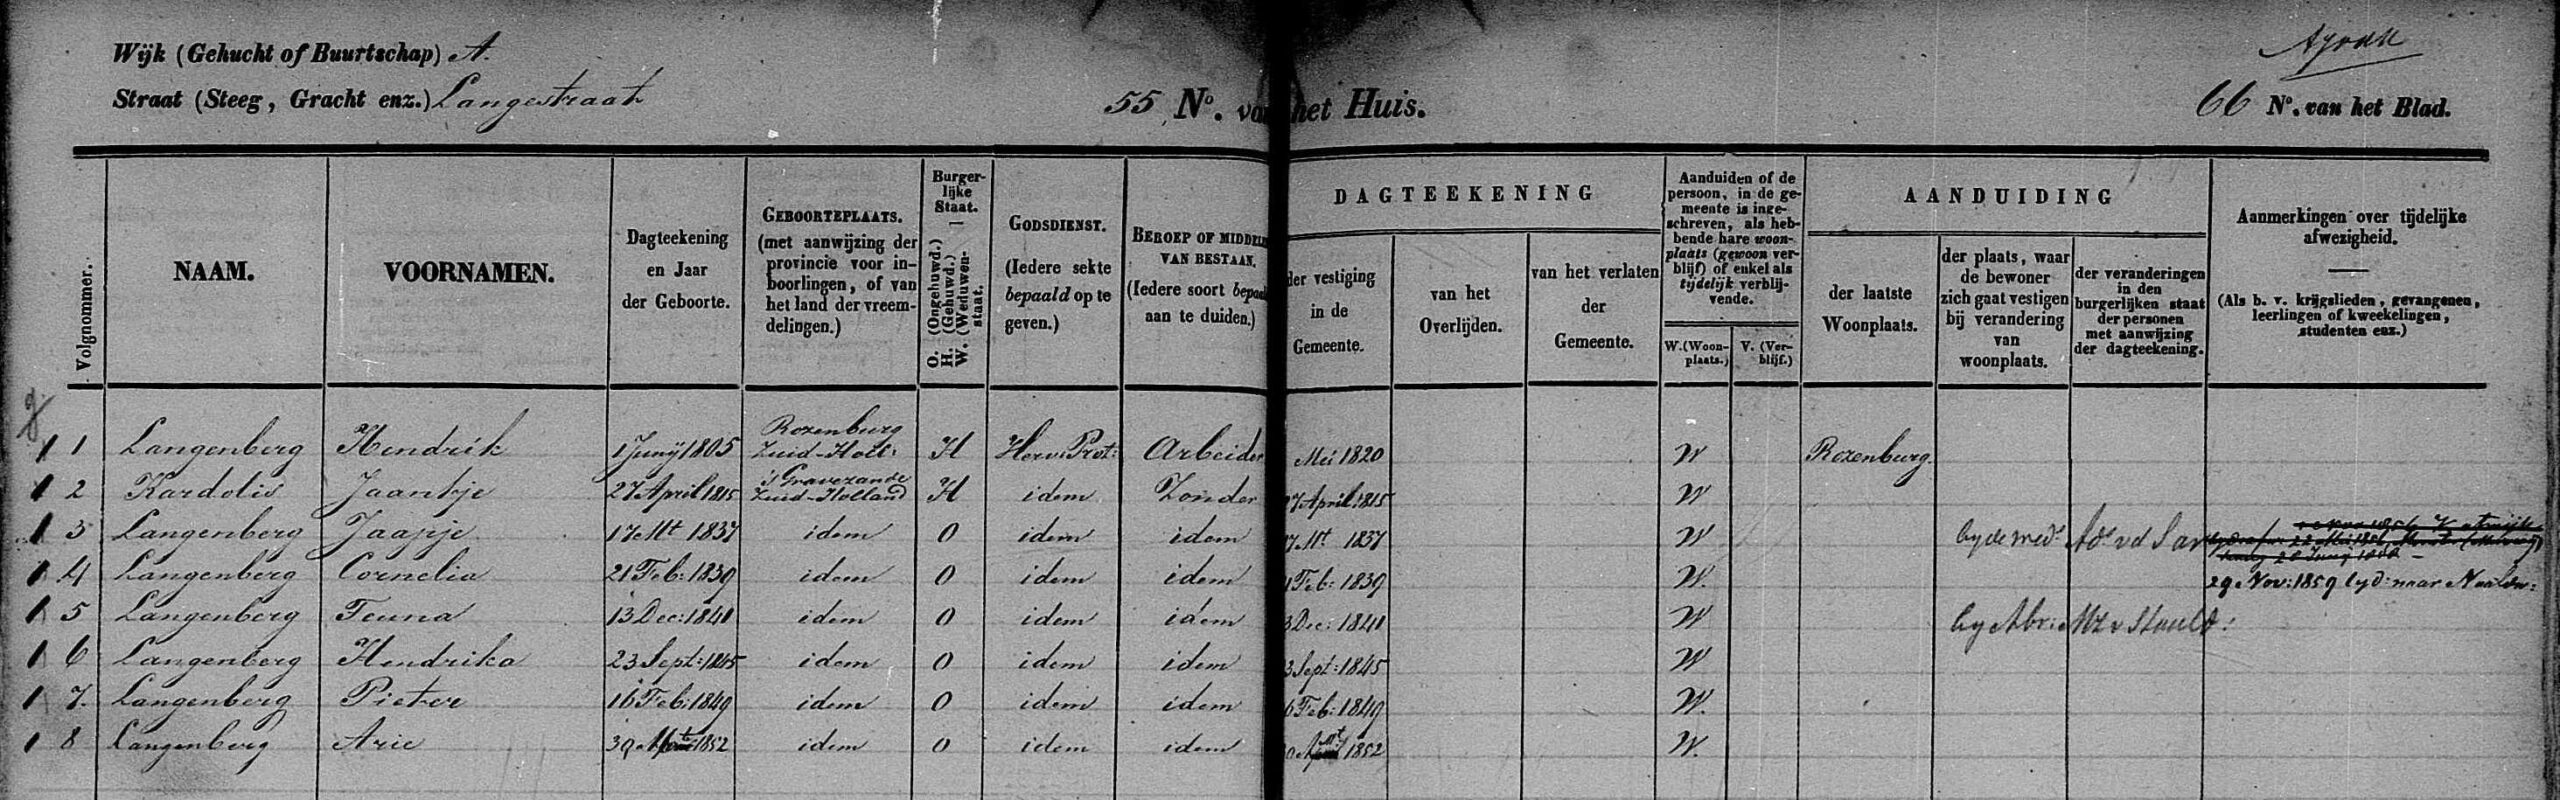 Wijk (Gehucht of Buurtschap) A.
Straat (Steeg, Gracht enz.) Langestraat
55 No. van het Huis.
66 No. van het Blad.
Volgnommer.
NAAM.
VOORNAMEN.
Dagteekening en Jaar der Geboorte.
GEBOORTEPLAATS. (met aanwijzing der provincie voor inboorlingen, of van het land der vreemdelingen.)
Burgerlijke Staat. O. (Ongehuwd.) H. (Gehuwd.) W. (Weduwenstaat.)
GODSDIENST. (Iedere sekte bepaald op te geven.)
BEROEP OF MIDDELEN VAN BESTAAN. (Iedere soort bepaald aan te duiden.)
DAGTEEKENING
der vestiging in de Gemeente.
van het Overlijden.
van het verlaten der Gemeente.
Aanduiden of de persoon, in de gemeente is ingeschreven, als hebbende hare woonplaats (gewoon verblijf) of enkel als tijdelijk verblijvende.
W. (Woonplaats.)
V. (Verblijf.)
AANDUIDING
der laatste Woonplaats.
der plaats, waar de bewoner zich gaat vestigen bij verandering van woonplaats.
der veranderingen in den burgerlijken staat der personen met aanwijzing der dagteekening.
Aanmerkingen over tijdelijke afwezigheid. (Als b. v. krijgslieden, gevangenen, leerlingen of kweekelingen, studenten enz.)
1 1 Langenberg Hendrik 1 Junij 1805 Rozenburg Zuid-Holl: H Herv: Prot: Arbeider Mei 1820 W Rozenburg.
1 2 Kardolis Jaantje 27 April 1815 's Gravezande Zuid-Holland H idem Zonder 27 April 1815 W
1 3 Langenberg Jaapje 17 Mt 1837 idem O idem idem 17 Mt 1837 W by de wedr Ad: v d Sar
1 4 Langenberg Cornelia 21 Feb: 1839 idem O idem idem 21 Feb: 1839 W. 29 Nov: 1859 tyd: naar Naaldw:
1 5 Langenberg Teuna 13 Dec: 1841 idem O idem idem 13 Dec: 1841 W by Abr: Mz v Staald:
1 6 Langenberg Hendrika 23 Sept: 1845 idem O idem idem 23 Sept: 1845 W
1 7. Langenberg Pieter 16 Feb: 1849 idem O idem idem 16 Feb: 1849 W.
1 8 Langenberg Arie 30 Mt 1852 idem O idem idem 30 Mt 1852 W.